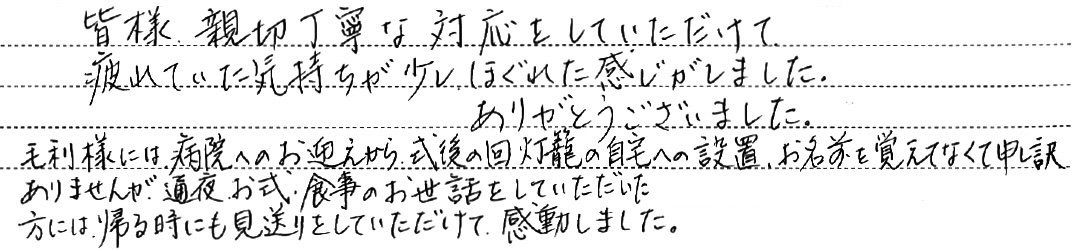 皆様、親切丁寧な対応をしていただけて、
疲れていた気持ちが少し、ほぐれた感じがしました。
ありがとうございました。
毛利様には、病院へのお迎えから、式後の回灯籠の自宅への設置、お名前を覚えてなくて申し訳
ありませんが、通夜、お式、食事のお世話をしていただいた
方には、帰る時にも見送りをしていただけて、感動しました。